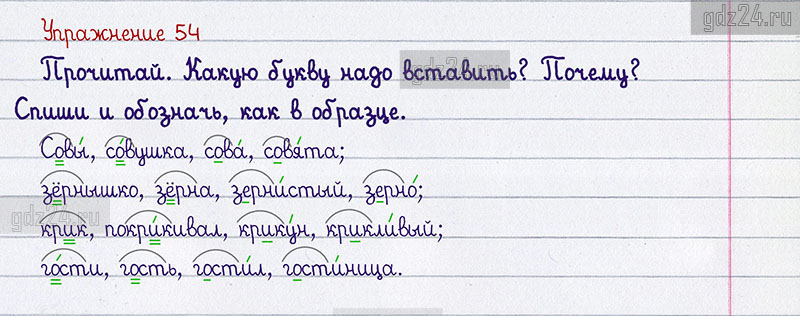 gdz24.ru
Упражнение 54
Прочитай. Какую букву надо вставить? Почему?
Спиши и обозначь, как в образце.
Совы́, со́вушка, сова́, совя́та;
зёрнышко, зёрна, зерни́стый, зерно́;
крик, покри́кивал, крику́н, крикли́вый;
gdz24.ru
го́сти, гость, гости́л, гости́ница.